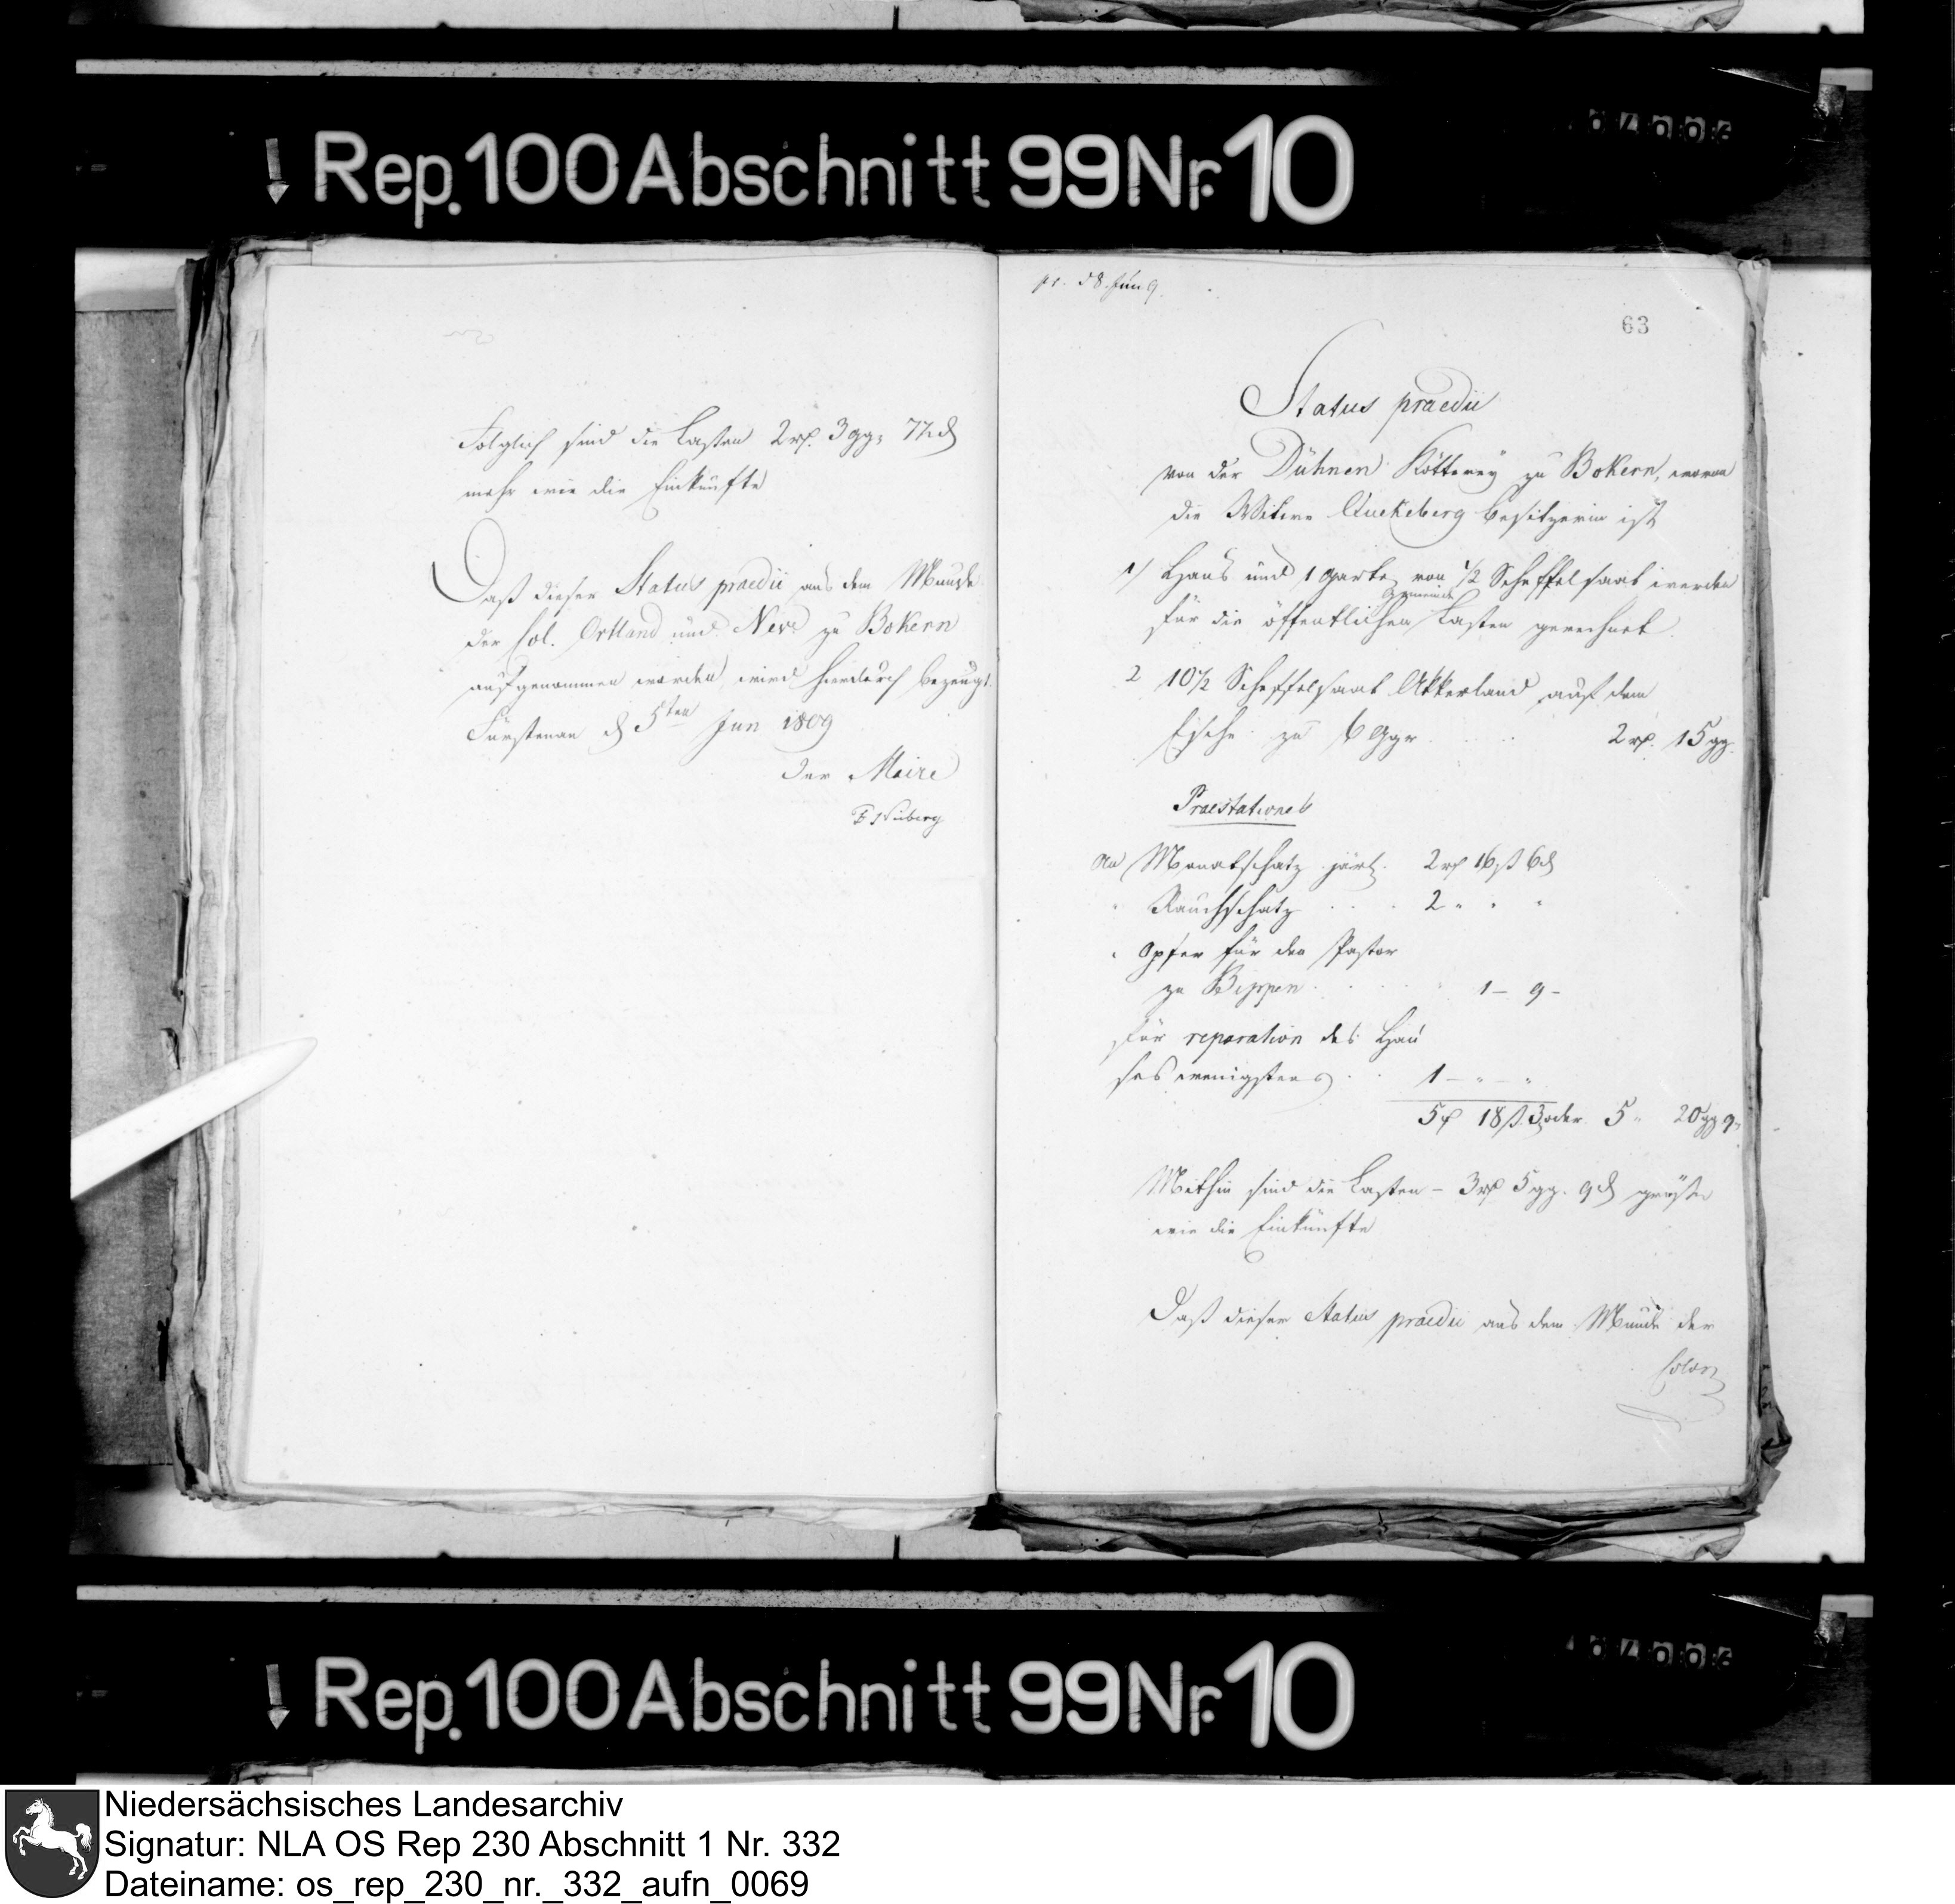 Rep. 100 Abschnitt 99 Nr. 10
Folglich sind die Lasten 2 rp. 3 gg. 7½ d
mehr wie die Einkünfte
Daß dieser Status praedii aus dem Munde
der Col. Ortland und zu Bokern
aufgenommen worden, wird hierdurch bezeugt.
Fürstenau d 5ten Jun 1809
Der Maire
pr. d 8. Jun 9.
63
Status praedii
von der Dühnen Kötterey zu Bokern, wovon
die Witwe Quekeberg Besitzerin ist
1) Haus und 1 Garten von ½ Scheffelsaat werden
für die öffentlichen Lasten gerechnet
2 10½ Scheffelsaat Akkerland auf dem
Esche zu 6 Ggr 2 rp. 15 gg.
Praestationes
An Monatschatz järl. 2 rp 16 ß 6 d
" Rauchschatz 2 " " "
" Opfer für den Pastor
zu Bippen 1 – 9 –
für reparation des Hau
ses wenigstens 1 – " – "
5 rp 18 ß 3 oder 5 " 20 gg 9 "
Mithin sind die Lasten – 3 rp 5 gg. 9 d größer
wie die Einkünfte
Daß dieser Status praedii aus dem Munde der
Colon
Rep. 100 Abschnitt 99 Nr. 10
Niedersächsisches Landesarchiv
Signatur: NLA OS Rep 230 Abschnitt 1 Nr. 332
Dateiname: os_rep_230_nr._332_aufn_0069